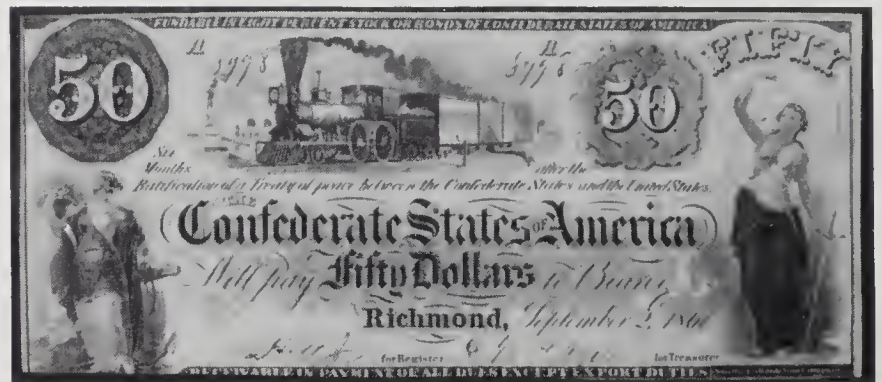 FUNDABLE IN EIGHT PERCENT STOCK OR BONDS OF CONFEDERATE STATES OF AMERICA
50 A A 50 FIFTY
Six Months after the
Ratification of a Treaty of peace between the Confederate States and the United States,
Confederate States OF America
Will pay Fifty Dollars to Bearer
Richmond, September 2, 186
for Register for Treasurer
RECEIVABLE IN PAYMENT OF ALL DUES EXCEPT EXPORT DUTIES